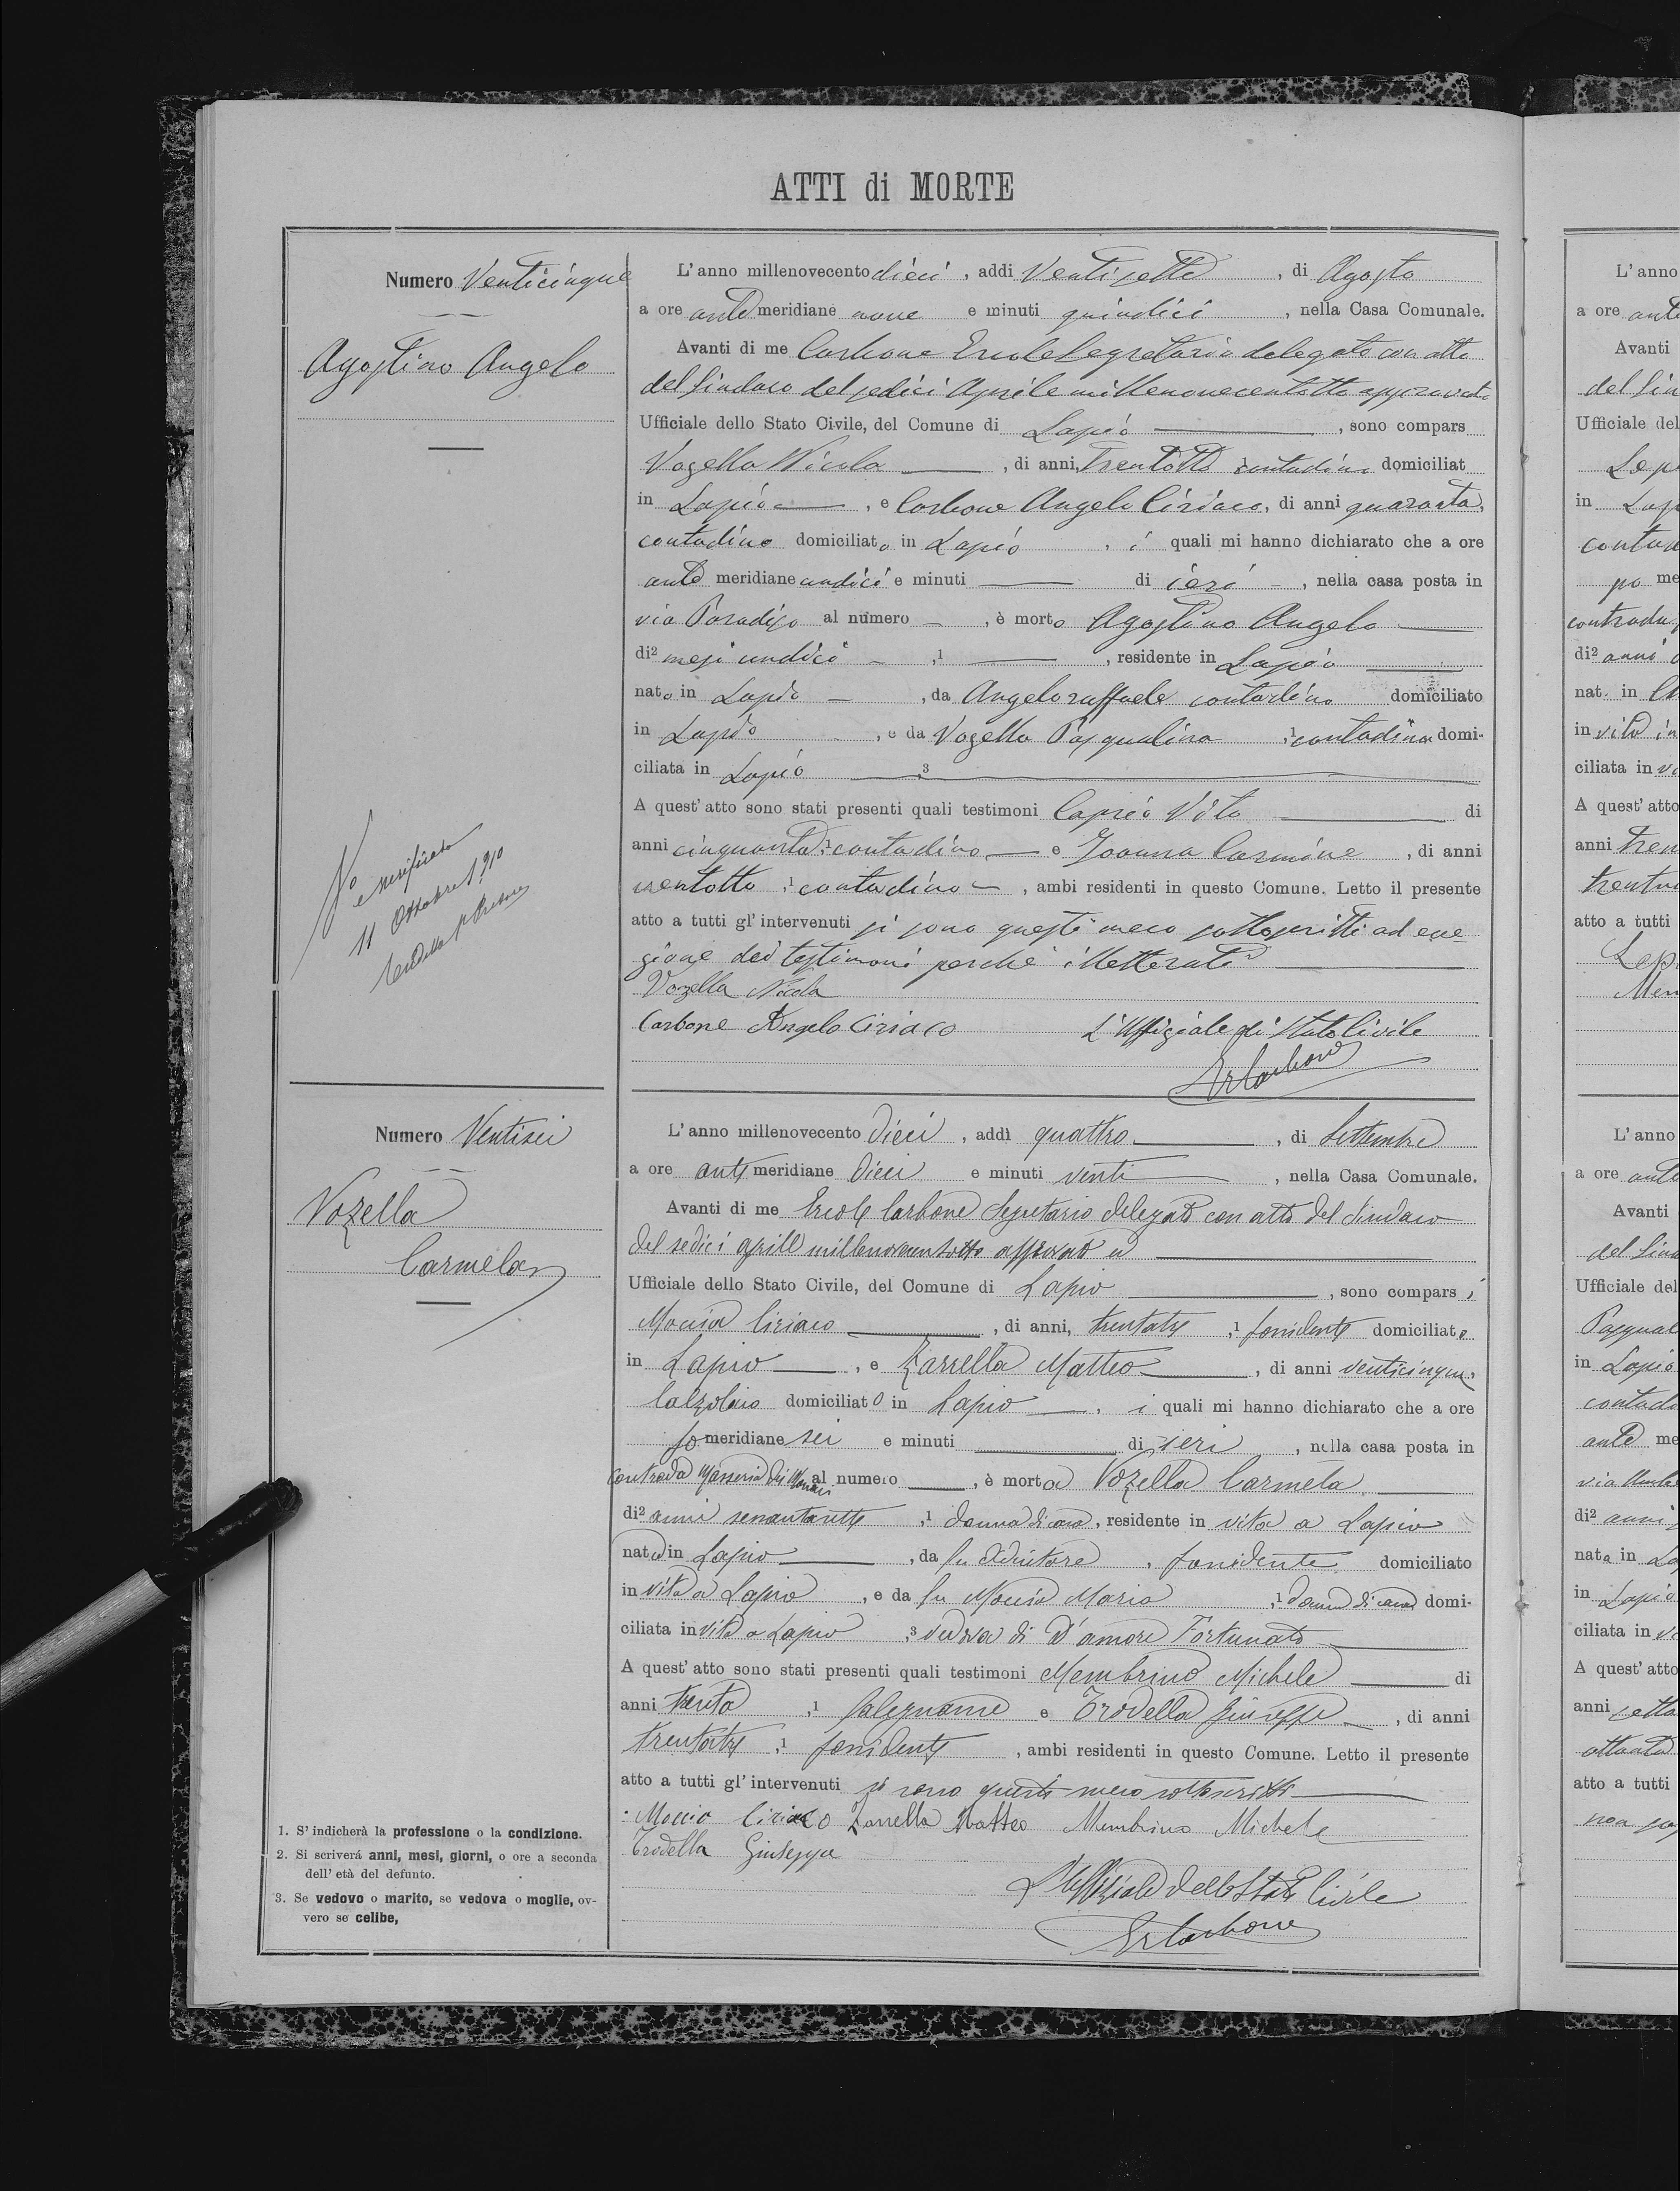 ATTI di MORTE
Numero Venticinque
Agostino Angelo
L'anno millenovecento dieci, addì Ventisette, di Agosto
a ore ante meridiane nove e minuti quindici, nella Casa Comunale.
Avanti di me Carbone Ercole Segretario delegato con atto
del Sindaco del sedici Aprile millenovecentotto approvato
Ufficiale dello Stato Civile, del Comune di Lapio, sono compars
Vozella Nicola, di anni, trentotto contadino domiciliat
in Lapio, e Carbone Angelo Ciriaco, di anni quaranta,
contadino domiciliato in Lapio, i quali mi hanno dichiarato che a ore
ante meridiane undici e minuti — di ieri, nella casa posta in
via Paradiso al numero —, è morto Agostino Angelo
di² mesi undici ,¹ —, residente in Lapio
nato in Lapio, da Angeloraffaele contadino domiciliato
in Lapio, e da Vozella Pasqualina ,¹ contadina domi-
ciliata in Lapio ,³
A quest'atto sono stati presenti quali testimoni Caprio Vito di
anni cinquanta,¹ contadino e Carmine, di anni
ventotto ,¹ contadino, ambi residenti in questo Comune. Letto il presente
atto a tutti gl'intervenuti si sono questi meco sottoscritti ad ecce-
zione dei testimoni perchè illetterati
Vozella Nicola
Carbone Angelo Ciriaco L'Uffiziale di Stato Civile
ErCarbone
Verificato
11 Ottobre 1910
Numero Ventisei
Vozella
Carmela
L'anno millenovecento dieci, addì quattro, di Settembre
a ore ante meridiane dieci e minuti venti, nella Casa Comunale.
Avanti di me Ercole Carbone Segretario delegato con atto del Sindaco
del sedici aprile millenovecentotto approvato
Ufficiale dello Stato Civile, del Comune di Lapio, sono comparsi
Moccia Ciriaco, di anni, trentatre ,¹ possidente domiciliato
in Lapio, e Zarrella Matteo, di anni venticinque,
calzolaio domiciliato in Lapio, i quali mi hanno dichiarato che a ore
po meridiane sei e minuti — di ieri, nella casa posta in
contrada Masseria dei Monaci al numero —, è morta Vozella Carmela
di² anni ,¹ donna di casa, residente in vita a Lapio
nata in Lapio, da fu , possidente domiciliato
in vita a Lapio, e da fu Moccia Maria ,¹ donna di casa domi-
ciliata in vita a Lapio ,³ vedova di D'amore Fortunato
A quest'atto sono stati presenti quali testimoni Membrino Michele di
anni trenta ,¹ falegname e Trodella Giuseppe, di anni
trentatre ,¹ possidente, ambi residenti in questo Comune. Letto il presente
atto a tutti gl'intervenuti si sono questi meco sottoscritti
Moccia Ciriaco Zarrella Matteo Membrino Michele
Trodella Giuseppe
L'Uffiziale dello Stato Civile
ErCarbone
1. S'indicherà la professione o la condizione.
2. Si scriverá anni, mesi, giorni, o ore a seconda
dell'età del defunto.
3. Se vedovo o marito, se vedova o moglie, ov-
vero se celibe,
L'anno
a ore ante
Avanti
del Sin
Ufficiale del
in Lap
contad
po me
contrada
di² anni
nat. in
in vita in
ciliata in
A quest'atto
anni tren
atto a tutti
L'anno
a ore ante
Avanti
del Sin
Ufficiale del
Pasqual
in Lapio
contad
ante me
di² anni
nata in La
in Lapio
ciliata in
A quest'atto
anni setta
ottanta
atto a tutti